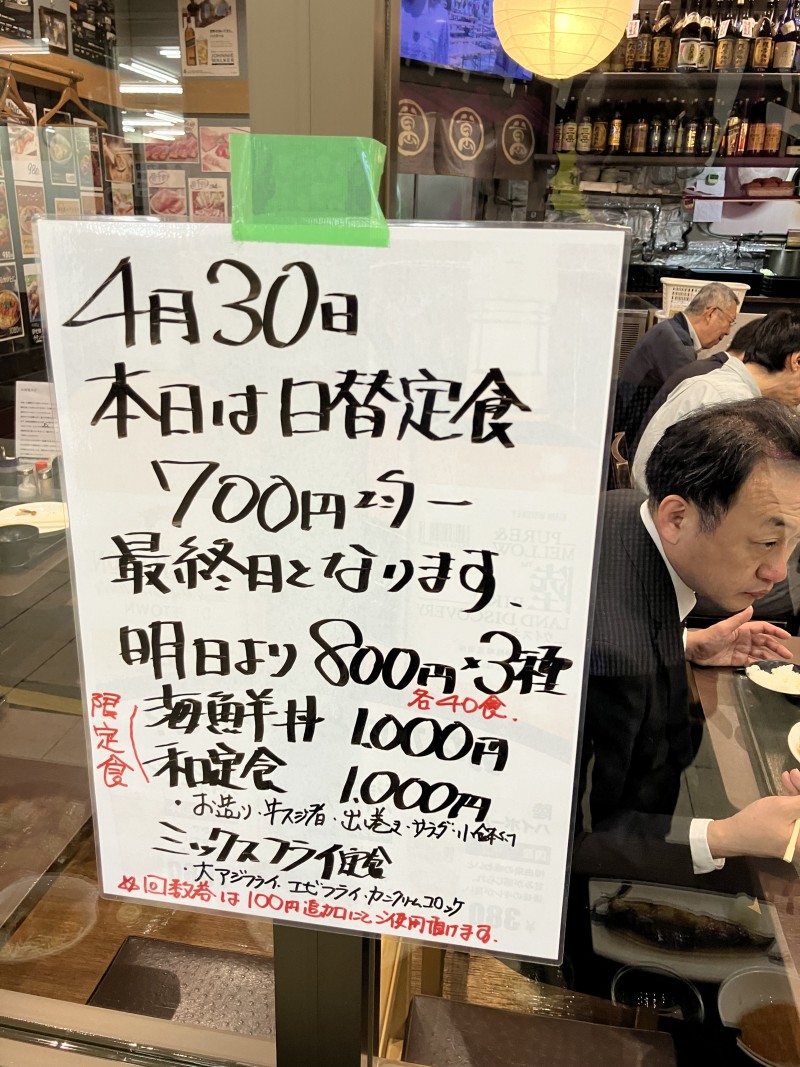 4月30日
本日は日替定食
700円均一
最終日となります、
明日より800円×3種
各40食.
限定食
海鮮丼 1.000円
和定食 1.000円
・お造り・牛スジ煮・出し巻き・サラダ・小鉢付
ミックスフライ定食
・大アジフライ・エビフライ・カニクリームコロッケ
回数券は100円追加にてご使用頂けます.